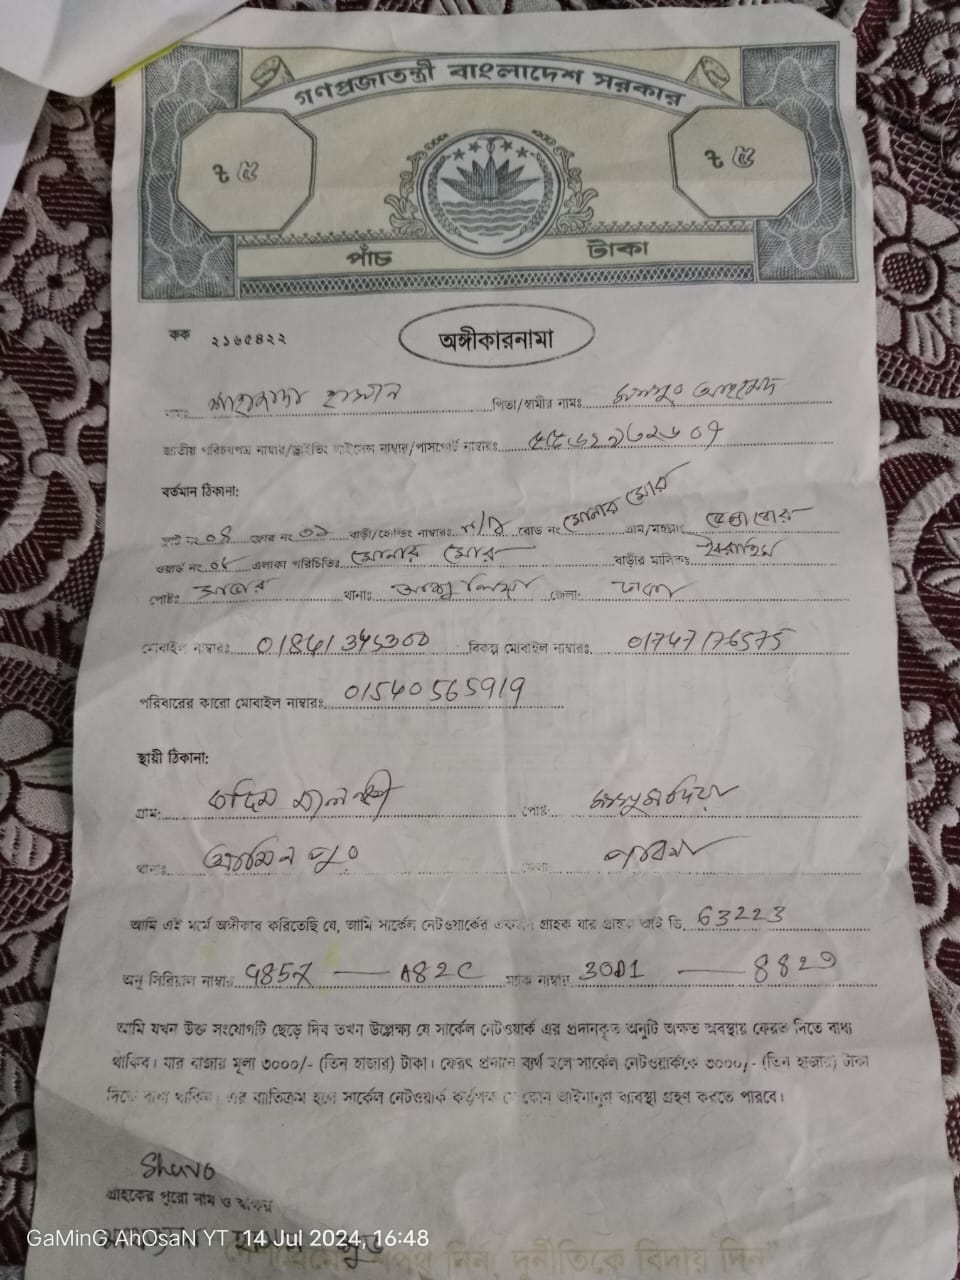 গণপ্রজাতন্ত্রী বাংলাদেশ সরকার
৳ ৫ ৳ ৫
পাঁচ টাকা
কক ২১৬৫৪২২
অঙ্গীকারনামা
নামঃ হাসান পিতা/স্বামীর নামঃ আহমেদ
জাতীয় পরিচয়পত্র নাম্বার/ড্রাইভিং লাইসেন্স নাম্বার/পাসপোর্ট নাম্বারঃ
বর্তমান ঠিকানা:
ফ্লাট নং ০৪ ফ্লোর নং ০১ বাড়ী/হোল্ডিং নাম্বারঃ N/A রোড নং সোনার মোর গ্রাম/মহল্লাঃ
ওয়ার্ড নং ০৮ এলাকা পরিচিতিঃ সোনার মোর বাড়ীর মালিকঃ
পোষ্টঃ সাভার থানাঃ আশুলিয়া জেলা: ঢাকা
মোবাইল নাম্বারঃ 01841345300 বিকল্প মোবাইল নাম্বারঃ 01747176575
পরিবারের কারো মোবাইল নাম্বারঃ 01540565919
স্থায়ী ঠিকানা:
গ্রাম: পোষ্ট:
থানাঃ জেলা: পাবনা
আমি এই মর্মে অঙ্গীকার করিতেছি যে, আমি সার্কেল নেটওয়ার্কের একজন গ্রাহক যার গ্রাহক আইডি. 63223
অনু সিরিয়াল নাম্বার A82C ম্যাক নাম্বার 30D1 8829
আমি যখন উক্ত সংযোগটি ছেড়ে দিব তখন উল্লেক্ষ্য যে সার্কেল নেটওয়ার্ক এর প্রদানকৃত অনুটি অক্ষত অবস্থায় ফেরত দিতে বাধ্য
থাকিব। যার বাজার মূল্য ৩০০০/- (তিন হাজার) টাকা। ফেরৎ প্রদানে ব্যর্থ হলে সার্কেল নেটওয়ার্ককে ৩০০০/- (তিন হাজার) টাকা
দিতে বাধ্য থাকিব। এর ব্যতিক্রম হলে সার্কেল নেটওয়ার্ক কর্তৃপক্ষ যে কোন আইনানুগ ব্যবস্থা গ্রহণ করতে পারবে।
গ্রাহকের পুরো নাম ও স্বাক্ষর
GaMinG AhOsaN YT 14 Jul 2024, 16:48
নিন, দুর্নীতিকে বিদায় দিন"